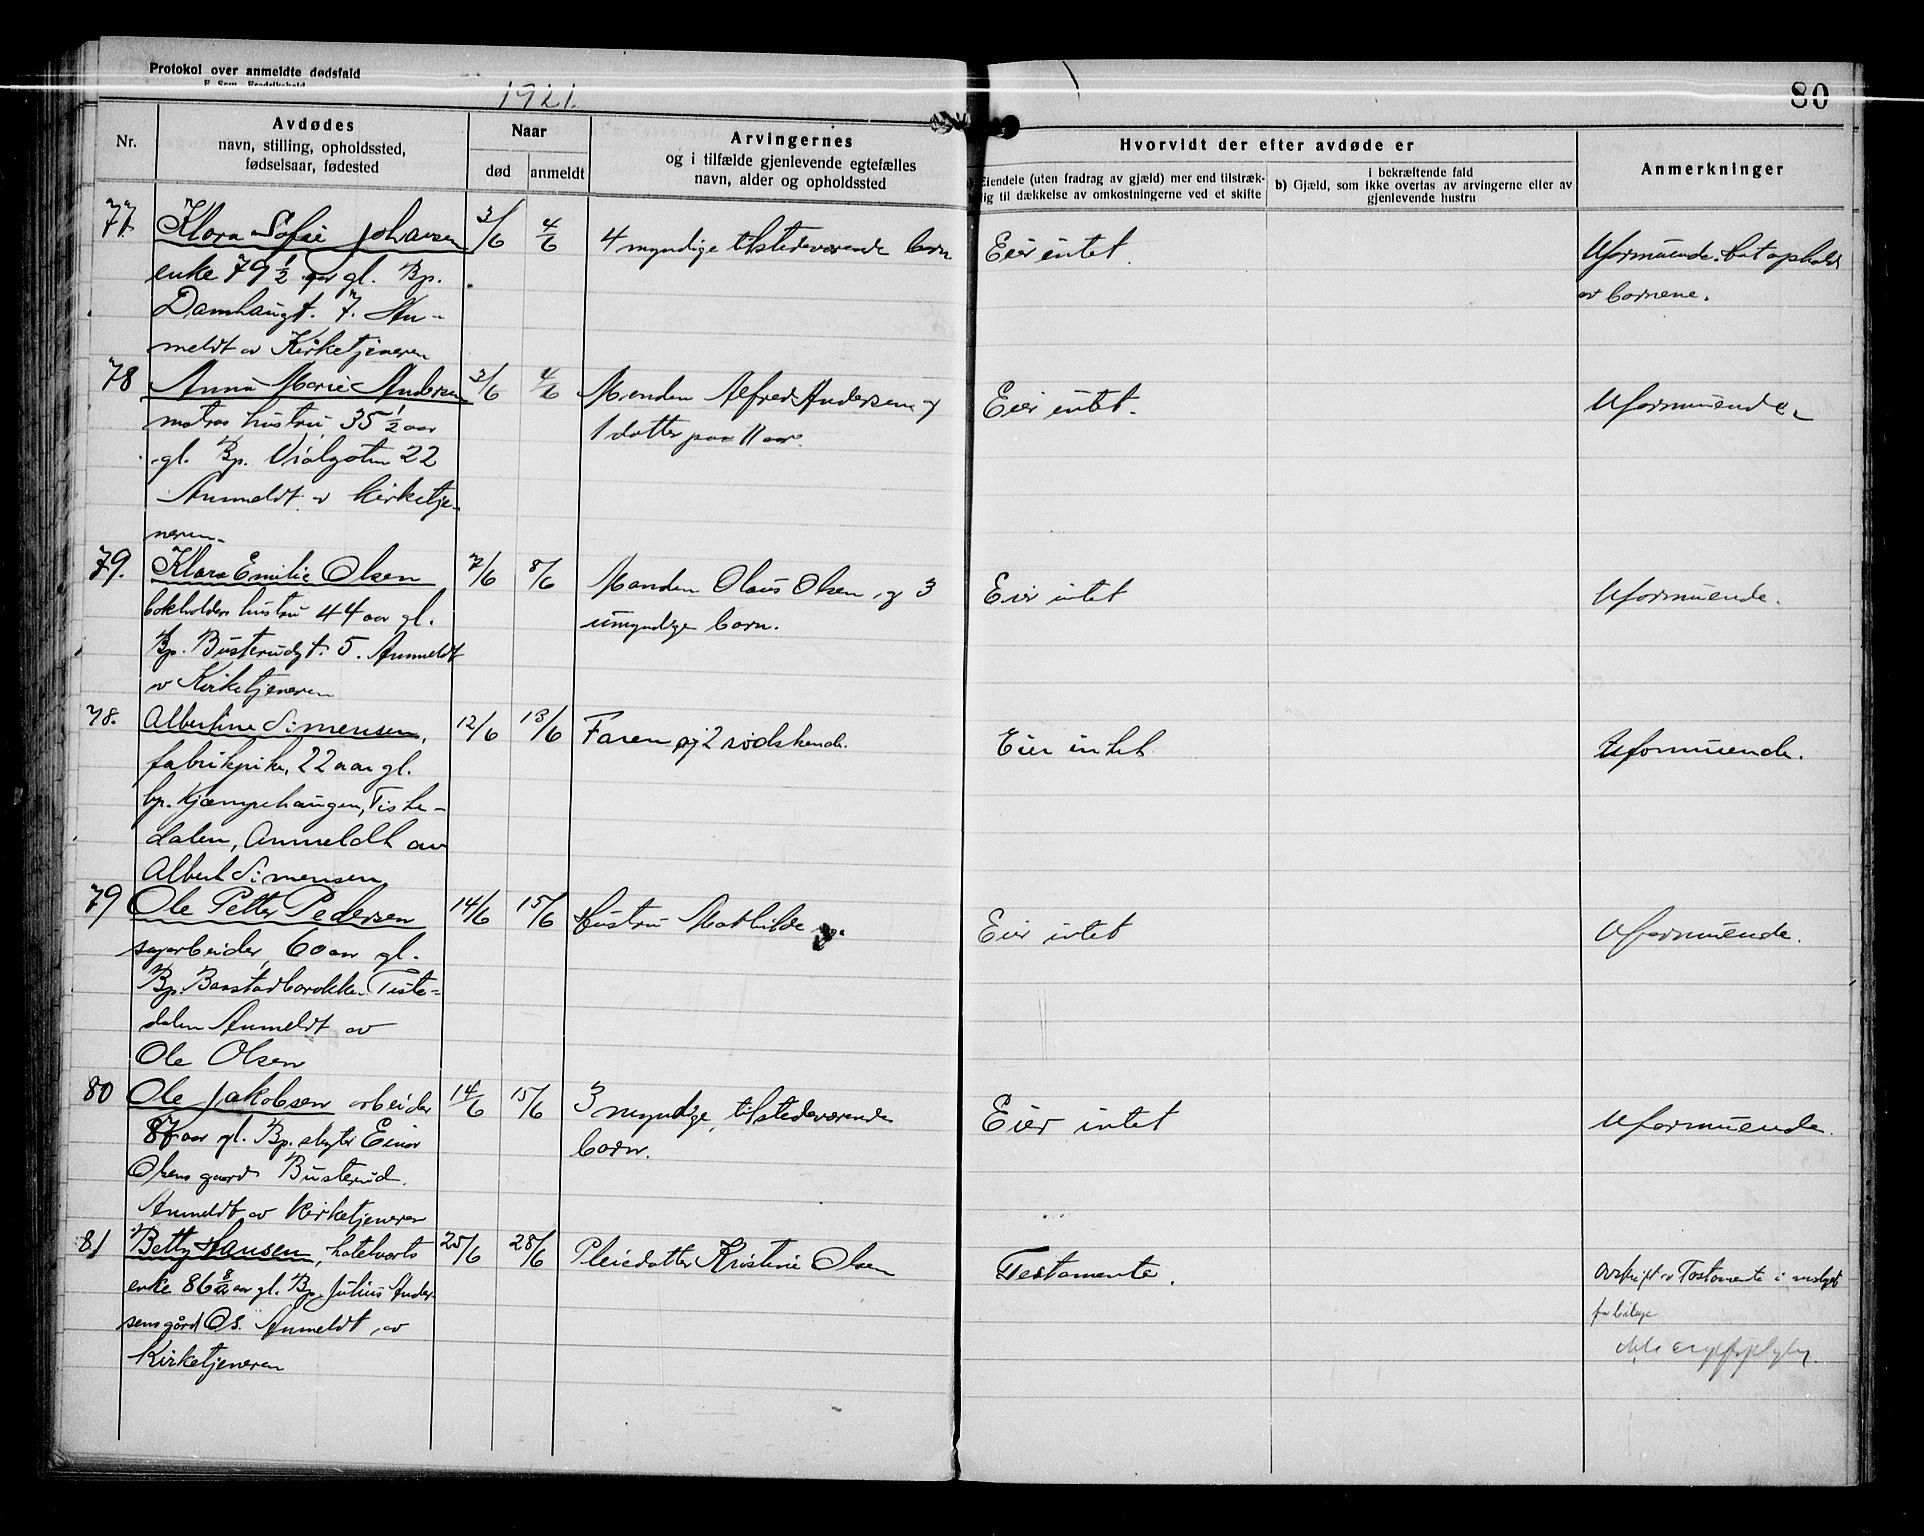 Protokol over anmeldte dødsfald
1921.
80
Nr.
Avdødes
navn, stilling, opholdssted,
fødselsaar, fødested
Naar
død
anmeldt
Arvingernes
og i tilfælde gjenlevende egtefælles
navn, alder og opholdssted
Hvorvidt der efter avdøde er
Eiendele (uten fradrag av gjæld) mer end tilstræk-
lig til dækkelse av omkostningerne ved et skifte
i bekræftende fald
b) Gjæld, som ikke overtas av arvingerne eller av
gjenlevende hustru
Anmerkninger
77. Klara Sofie Johansen 3/6 4/6 4 myndige tilstedeværende barn Eier intet. Uformuende. Hat ophold
enke 79 1/2 aar gl. Bp. av barnene.
Damhaugt. 7. An-
meldt av Kirketjeneren
78 Anna Marie Andersen 3/6 4/6 Manden Alfred Andersen og Eier intet. Uformuende.
matros hustru, 35 1/2 aar 1 datter paa 11 aar.
gl. Bp. Violgaten 22
Anmeldt av Kirketje-
neren.
79. Klara Emilie Olsen 7/6 8/6 Manden Olaus Olsen og 3 Eier intet Uformuende.
bokholders hustru 44 aar gl. umyndige barn.
Bp. Busterudgt. 5. Anmeldt
av Kirketjeneren
78. Albertine Simensen, 12/6 13/6 Faren og 2 sødskende. Eier intet Uformuende.
fabrikpike, 22 aar gl.
bp. Kjæmpehaugen, Tiste-
dalen, Anmeldt av
Albert Simensen
79 Ole Petter Pedersen 14/6 15/6 Hustru Mathilde Eier intet Uformuende.
sagarbeider, 60 aar gl.
Bp. Baastadbarakke. Tiste-
dalen Anmeldt av
Ole Olsen
80 Ole Jakobsen arbeider 14/6 15/6 3 myndige, tilstedeværende Eier intet Uformuende.
87 aar gl. Bp. Einar barn.
Olsens gaard Busterud.
Anmeldt av Kirketjeneren
81 Betty Hansen, hotelværts 25/6 28/6 Pleiedatter Kristine Olsen Testamente. Avskrift av Testamente i
enke 86 8/12 aar gl. Bp. Julius Ander-
sens gård Os. Anmeldt av
Kirketjeneren